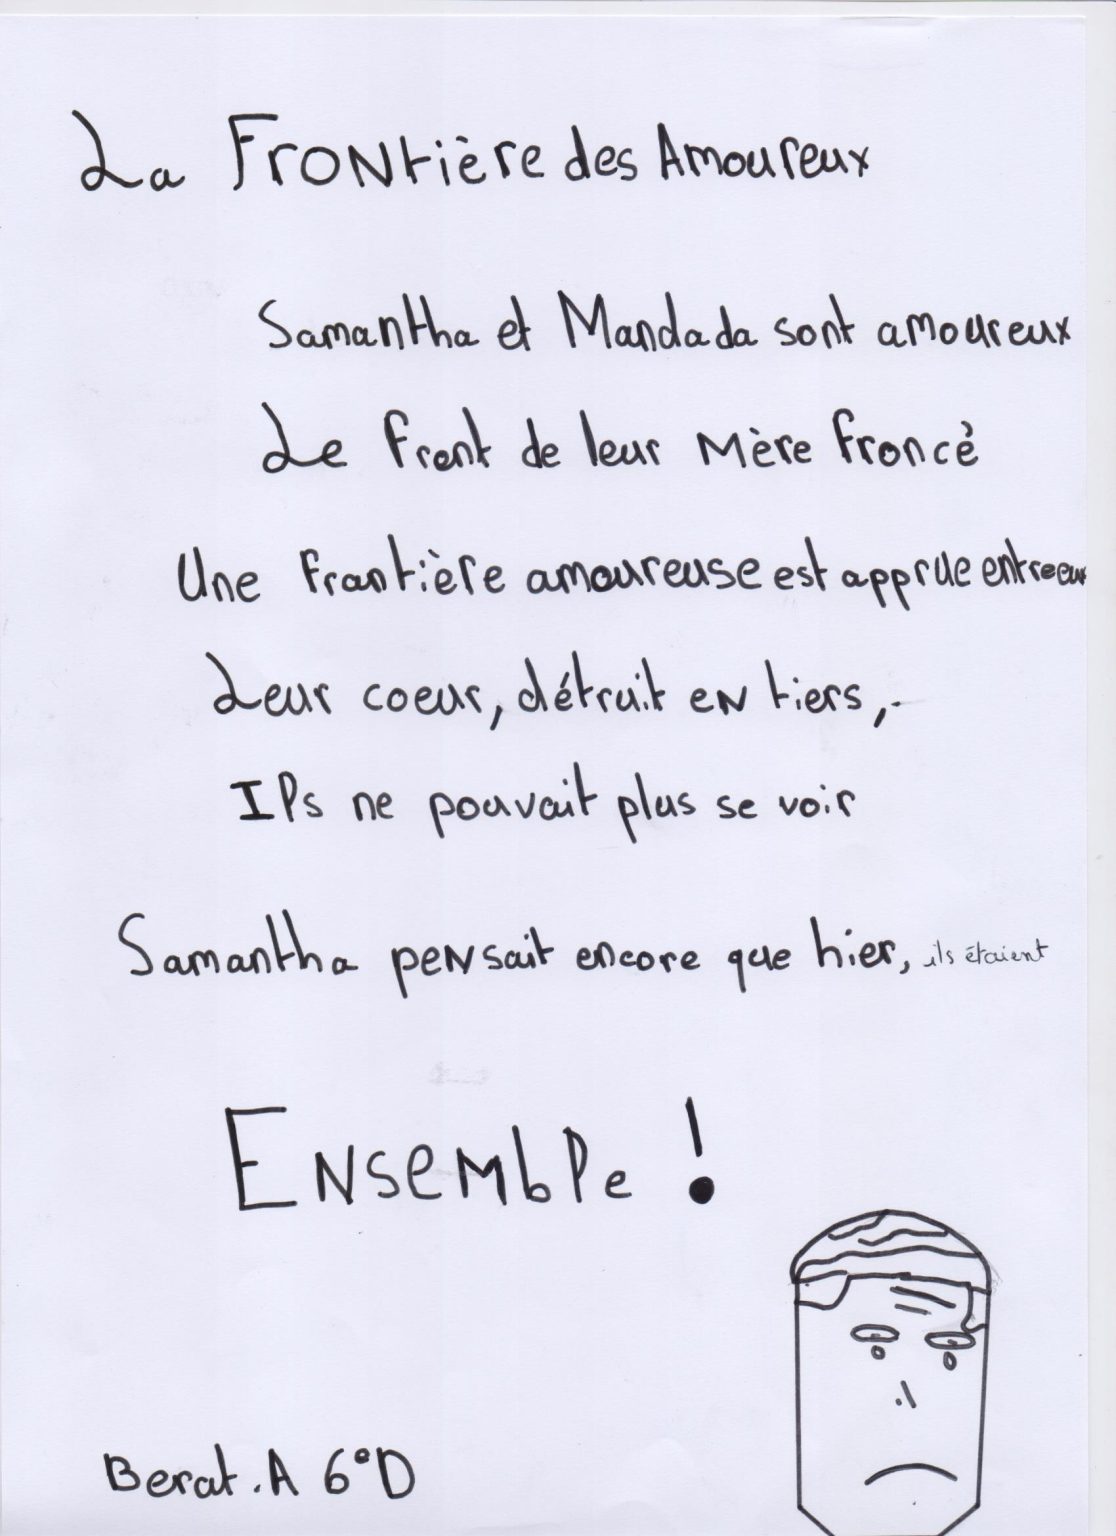 La Frontière des Amoureux
Samantha et Mandada sont amoureux
Le front de leur Mère froncé
Une frontière amoureuse est apprue entre eux
Leur coeur, détruit en tiers,
Ils ne pouvait plus se voir
Samantha pensait encore que hier, ils étaient
Ensemble !
Berat.A 6°D